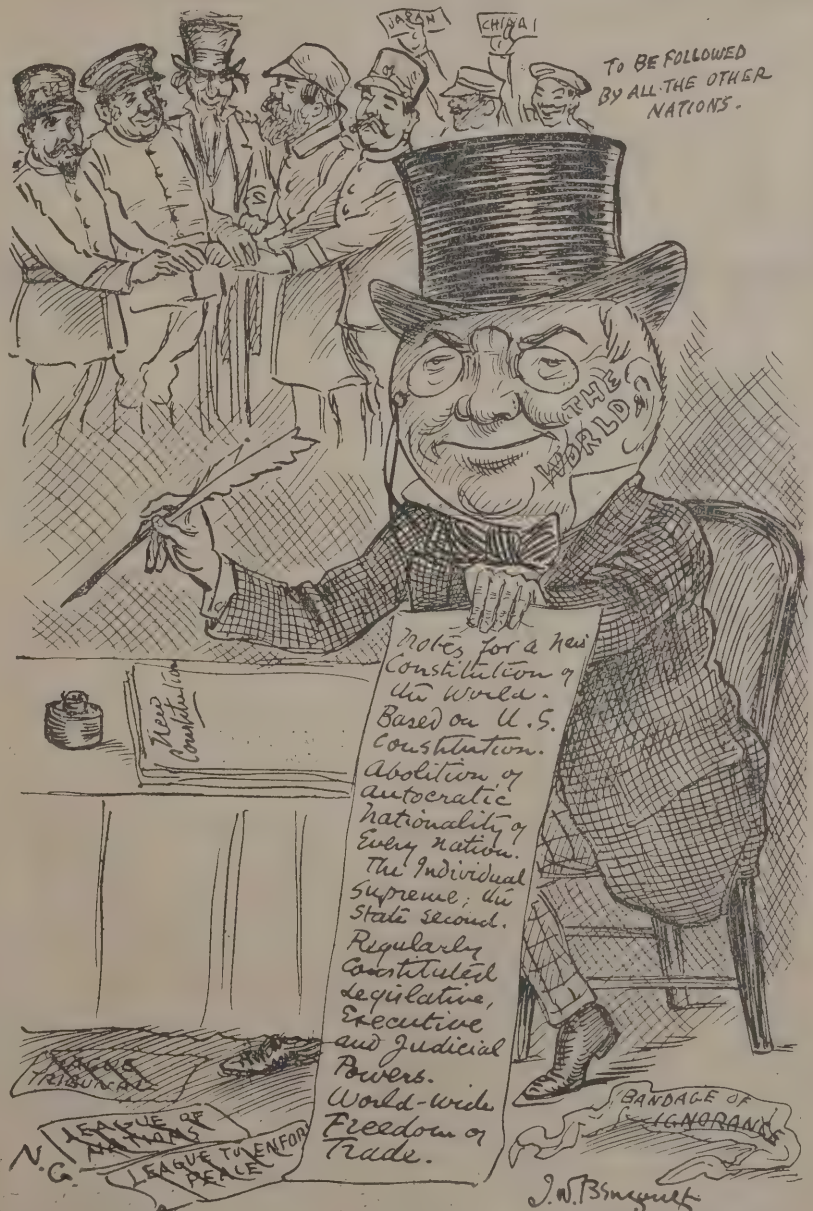 JAPAN
CHINA
TO BE FOLLOWED
BY ALL THE OTHER
NATIONS.
THE
WORLD
Notes for a New
Constitution of
the World.
Based on U.S.
Constitution.
Abolition of
autocratic
Nationality of
Every nation.
The Individual
Supreme; the
State second.
Regularly
Constituted
Legislative,
Executive
and Judicial
Powers.
World-wide
Freedom of
Trade.
New
Constitution
HAGUE
TRIBUNAL
LEAGUE OF
NATIONS
N.G.
LEAGUE TO ENFORCE
PEACE
BANDAGE OF
IGNORANCE